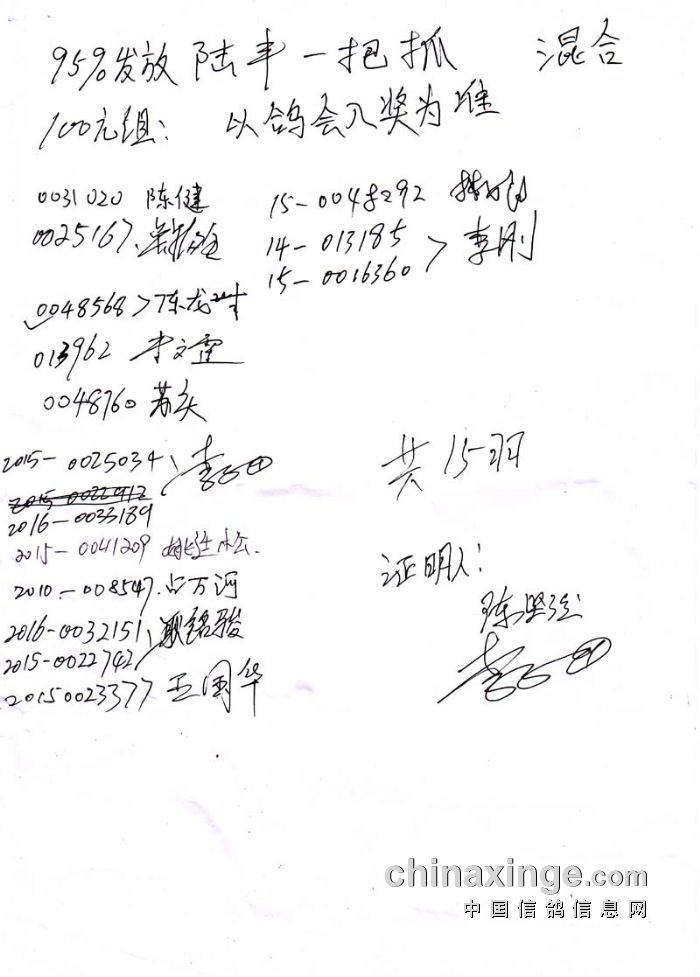 95%发放 陆丰一把抓 混合
100元组： 以鸽会入奖为准
0031020 陈健
0025167.
0048568>陈龙
013962 李文霆
0048760
15-0048292
14-013185
15-0016360 > 李刚
2015-0025034、李
2015-0022912
2016-0033189
2015-0041209 松.
2010-008547.占万河
2016-0032151、耿铭骏
2015-0022742
20150023377 王国华
共15羽
证明人：
陈坚强
李
chinaxinge.com
中国信鸽信息网